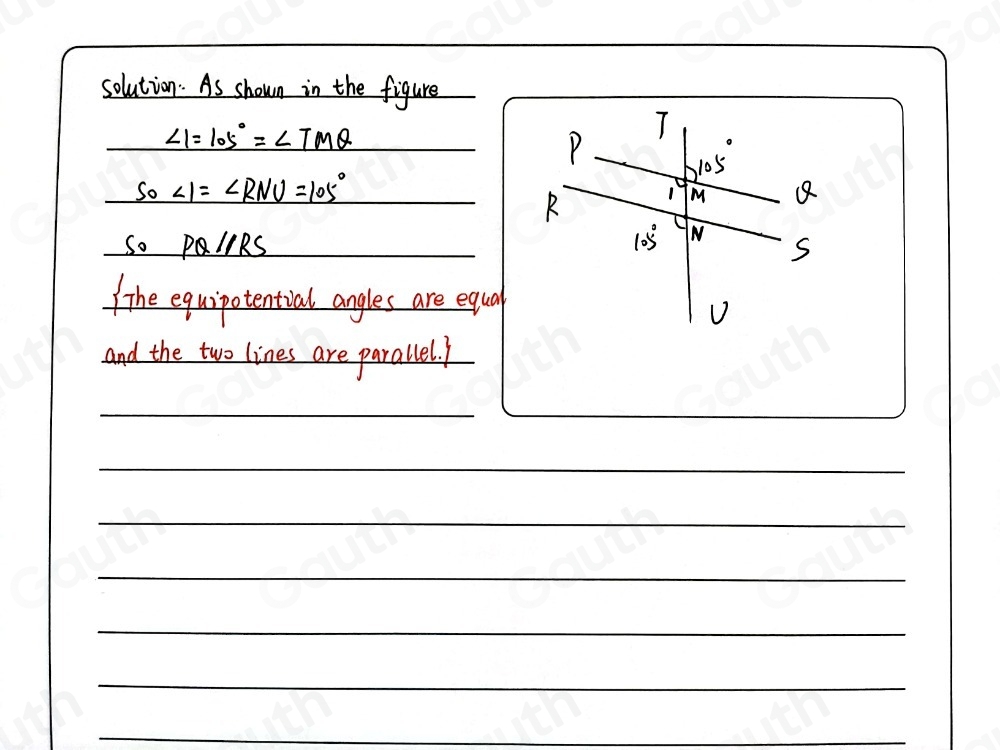 solution: As shown in the figure
∠1=105°=∠TMQ
So ∠1=∠RNU=105°
So PQ//RS
{The equipotential angles are equal
and the two lines are parallel.}
T
P
105°
1 M
Q
R
105° N
S
U
Gauth